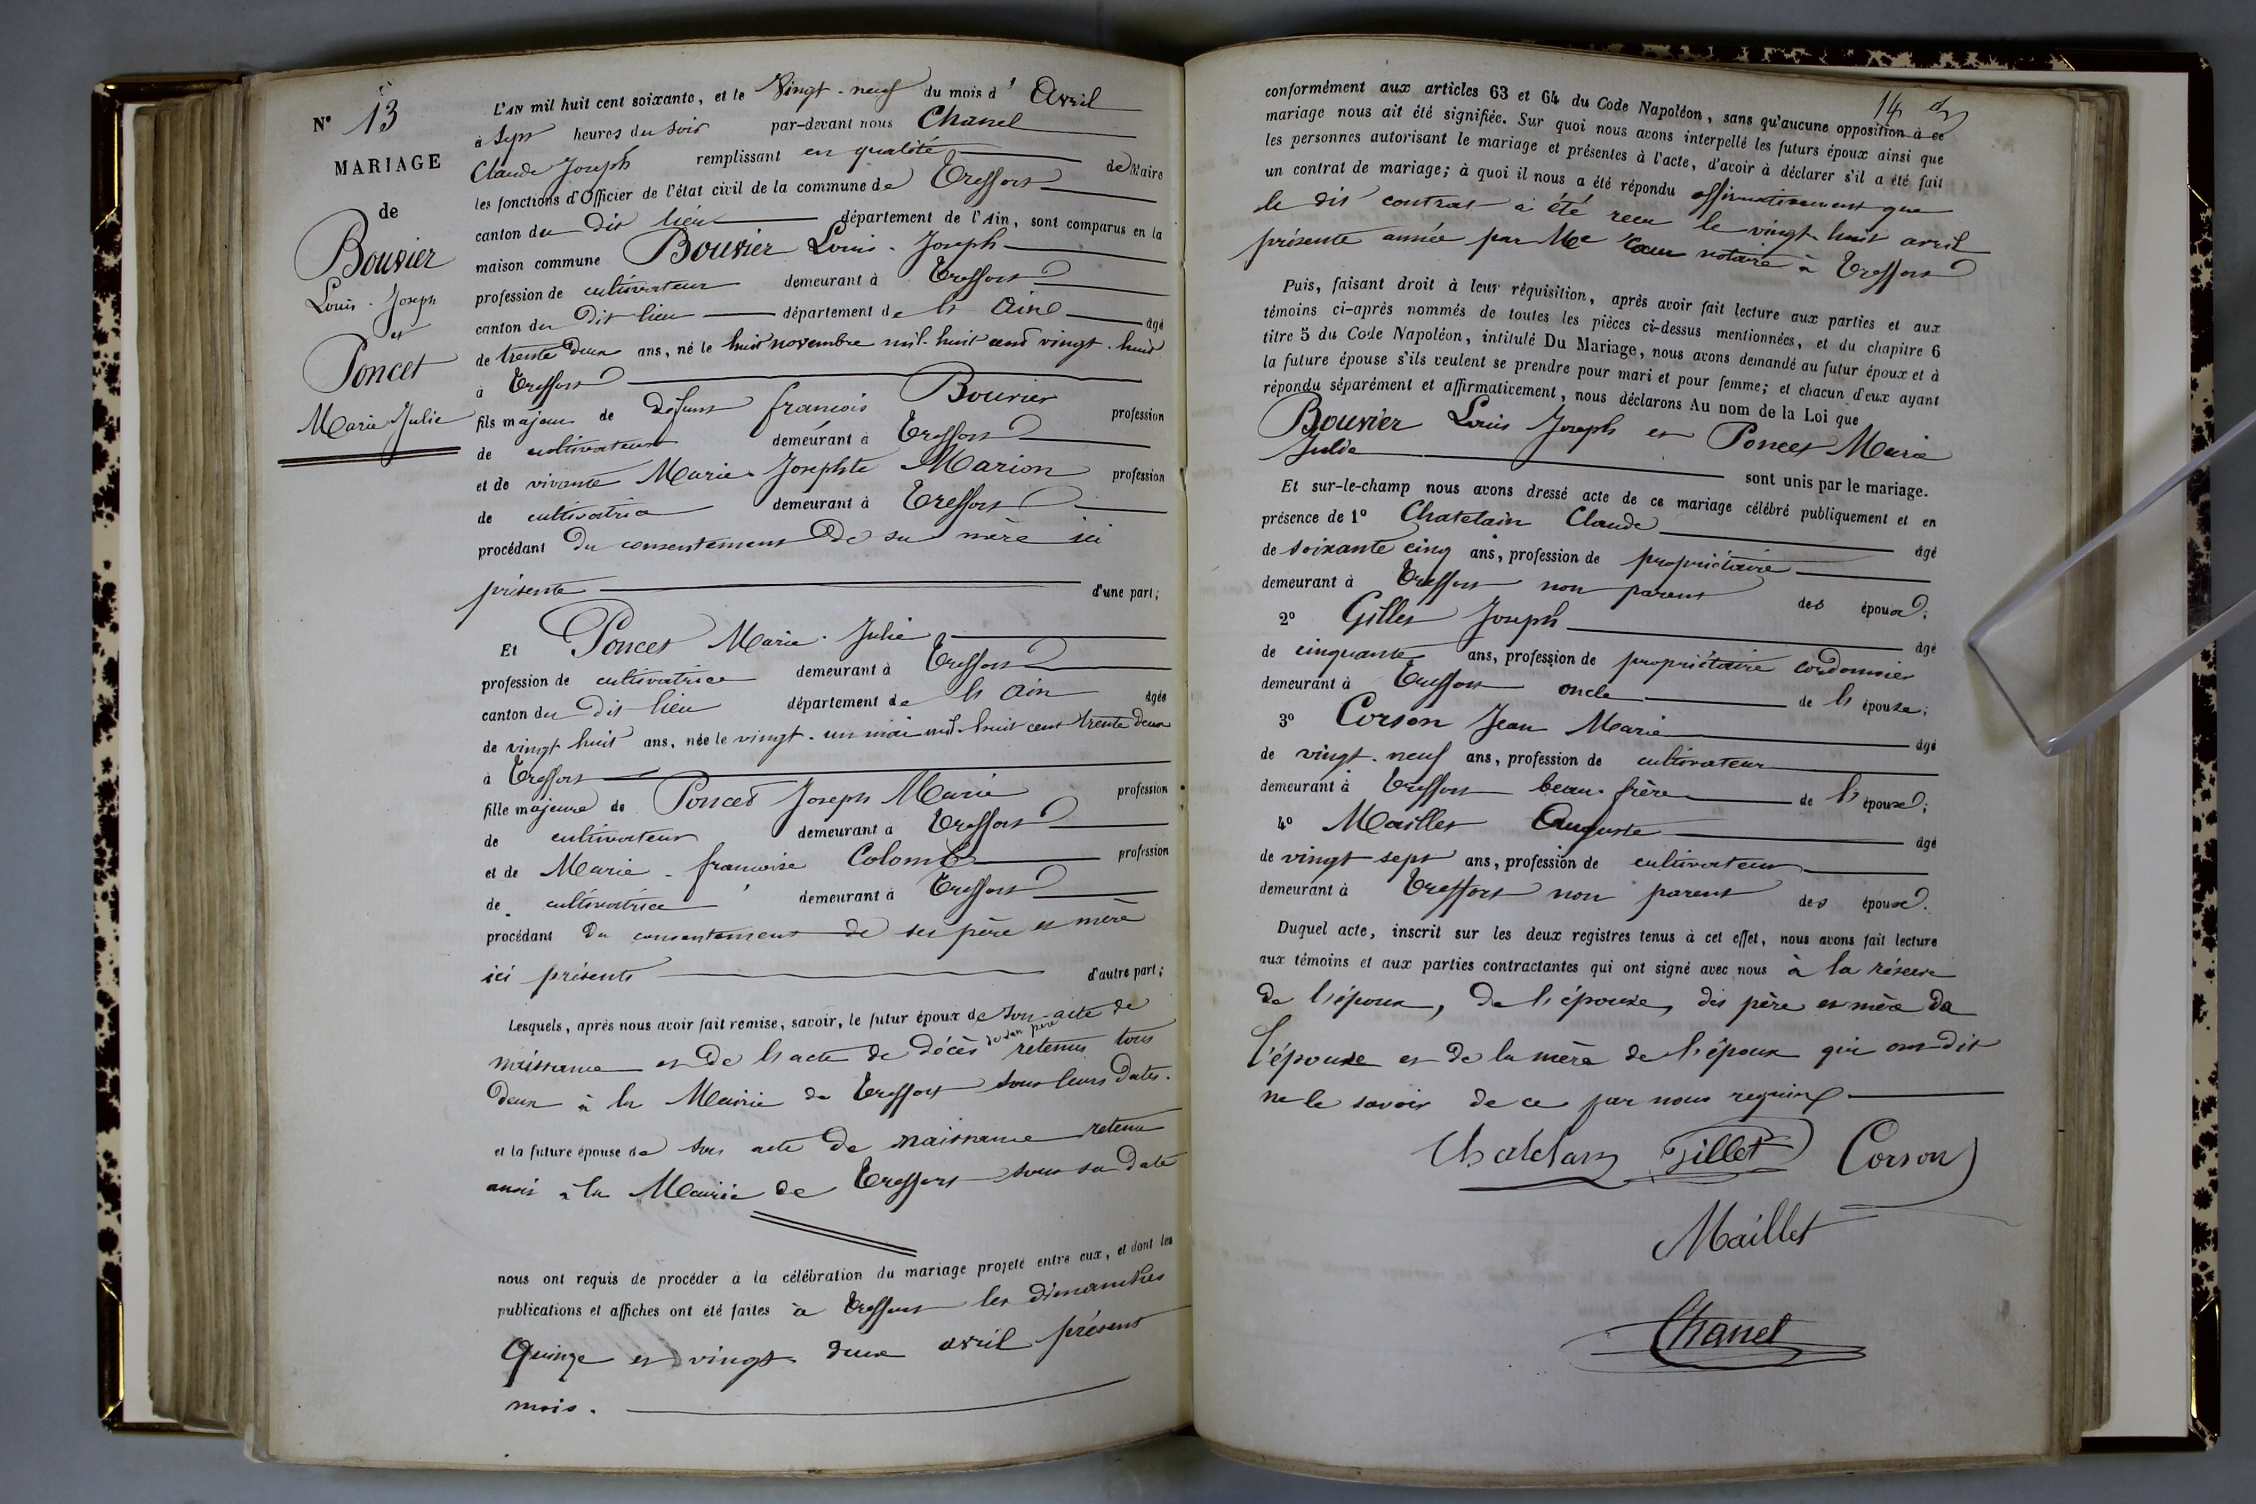 N° 13
MARIAGE
de
Bouvier
Louis-Joseph
et
Poncet
Marie Julie
L'AN mil huit cent soixante, et le Vingt-neuf du mois d'Avril
à Sept heures du soir par-devant nous Chanel
Claude Joseph remplissant en qualité de Maire
les fonctions d'Officier de l'état civil de la commune de Treffort
canton du dit lieu département de l'Ain, sont comparus en la
maison commune Bouvier Louis-Joseph
profession de cultivateur demeurant à Treffort
canton du dit lieu département de l'Ain âgé
de trente deux ans, né le huit novembre mil-huit cent vingt-huit
à Treffort
fils majeur de défunt francois Bouvier profession
de cultivateur demeurant à Treffort
et de vivante Marie-Josephte Marion profession
de cultivatrice demeurant à Treffort
procédant du consentement de sa mère ici
présente d'une part;
Et Poncet Marie-Julie
profession de cultivatrice demeurant à Treffort
canton du dit lieu département de l'Ain âgée
de vingt huit ans, née le vingt-un mai mil-huit cent trente deux
à Treffort
fille majeure de Poncet Joseph Marie profession
de cultivateur demeurant à Treffort
et de Marie-francoise Colomb profession
de cultivatrice demeurant à Treffort
procédant du consentement de ses père et mère
ici présents d'autre part;
Lesquels, après nous avoir fait remise, savoir, le futur époux de son acte de
naissance et de l'acte de décès de son père retenus tous
deux à la Mairie de Treffort sous leurs dates.
et la future épouse de son acte de naissance retenu
aussi à la Mairie de Treffort sous sa date
nous ont requis de procéder à la célébration du mariage projeté entre eux, et dont les
publications et affiches ont été faites à Treffort les dimanches
Quinze et vingt-deux avril présent
mois.
14
conformément aux articles 63 et 64 du Code Napoléon, sans qu'aucune opposition à ce
mariage nous ait été signifiée. Sur quoi nous avons interpellé les futurs époux ainsi que
les personnes autorisant le mariage et présentes à l'acte, d'avoir à déclarer s'il a été fait
un contrat de mariage; à quoi il nous a été répondu affirmativement que
le dit contrat a été recu le vingt-huit avril
présente année par Me notaire à Treffort
Puis, faisant droit à leur réquisition, après avoir fait lecture aux parties et aux
témoins ci-après nommés de toutes les pièces ci-dessus mentionnées, et du chapitre 6
titre 5 du Code Napoléon, intitulé Du Mariage, nous avons demandé au futur époux et à
la future épouse s'ils veulent se prendre pour mari et pour femme; et chacun d'eux ayant
répondu séparément et affirmativement, nous déclarons Au nom de la Loi que
Bouvier Louis Joseph et Poncet Marie
Julie sont unis par le mariage.
Et sur-le-champ nous avons dressé acte de ce mariage célébré publiquement et en
présence de 1° Chatelain Claude âgé
de soixante cinq ans, profession de propriétaire
demeurant à Treffort non parent des époux;
2° Gillet Joseph âgé
de cinquante ans, profession de propriétaire cordonnier
demeurant à Treffort oncle de l'épouse;
3° Corson Jean Marie âgé
de vingt-neuf ans, profession de cultivateur
demeurant à Treffort beau-frère de l'épouse;
4° Maillet Auguste âgé
de vingt-sept ans, profession de cultivateur
demeurant à Treffort non parent des époux.
Duquel acte, inscrit sur les deux registres tenus à cet effet, nous avons fait lecture
aux témoins et aux parties contractantes qui ont signé avec nous à la réserve
de l'époux, de l'épouse, des père et mère de
l'épouse et de la mère de l'époux qui ont dit
ne le savoir de ce par nous requis
Chatelain Gillet Corson
Maillet
Chanel